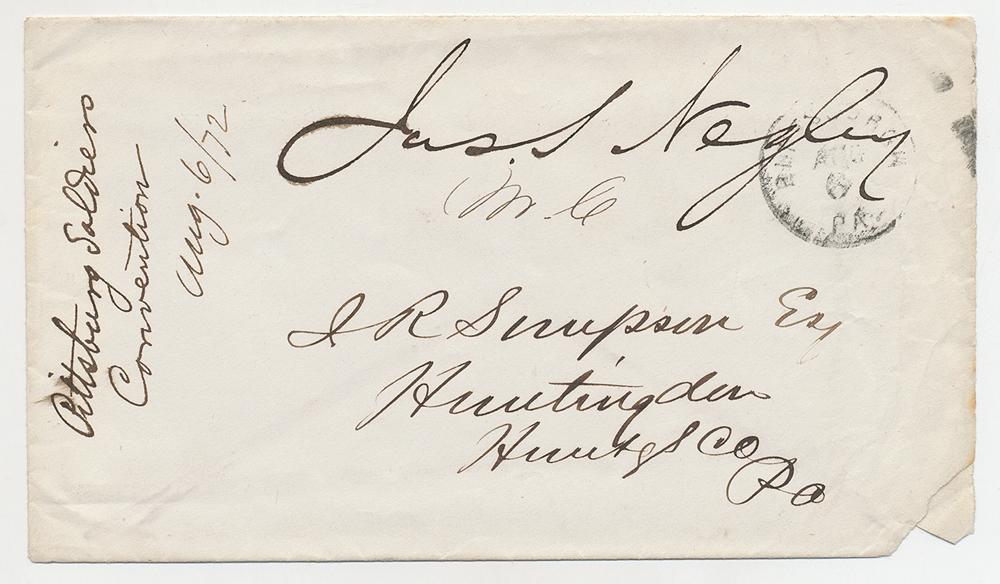 Jas. S Negley
M. C
J R Simpson Esq
Huntingdon
Huntgd Co
Pa
Pittsburg Soldiers
Convention
Aug. 6/72
AUG
6
PA